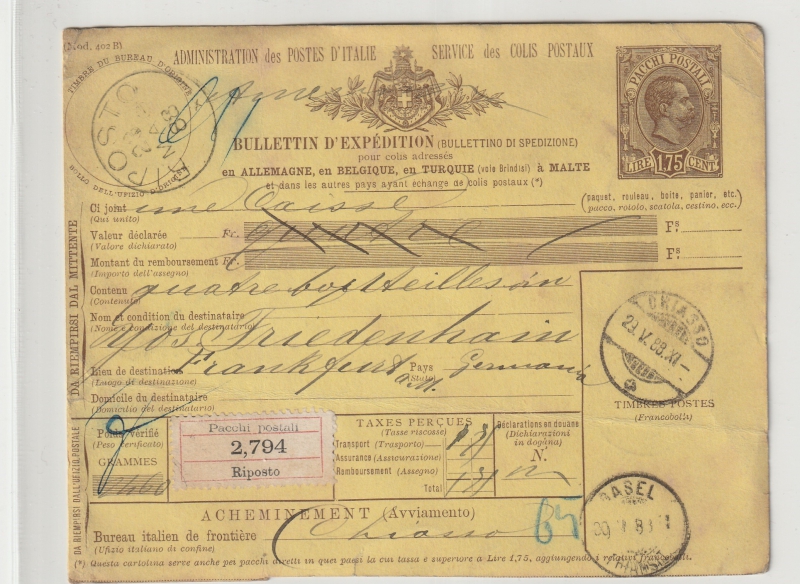 (Mod. 402 B)
ADMINISTRATION des POSTES D'ITALIE SERVICE des COLIS POSTAUX
TIMBRE DU BUREAU D'ORIGINE
RIPOSTO
BOLLO DELL'UFIZIO D'ORIGINE
PACCHI POSTALI
LIRE 1,75 CENT.
BULLETTIN D'EXPÉDITION (BULLETTINO DI SPEDIZIONE)
pour colis adressés
en ALLEMAGNE, en BELGIQUE, en TURQUIE (voie Brindisi) à MALTE
et dans les autres pays ayant échange de colis postaux (*)
DA RIEMPIRSI DAL MITTENTE
Ci joint une Caisse (paquet, rouleau, boite, panier, etc.)
(Qui unito) (pacco, rotolo, scatola, cestino, ecc.)
Valeur déclarée Fc. Fs.
(Valore dichiarato)
Montant du remboursement Fc. Fs.
(Importo dell'assegno)
Contenu quatre bouteilles vin
(Contenuto)
Nom et condition du destinataire
(Nome e condizione del destinatario)
Jos. Friedenhain
Lieu de destination Frankfurt a/M. Pays Germania
(Luogo di destinazione) (Stato)
Domicile du destinataire
(Domicilio del destinatario)
CHIASSO
29.V.88.XI
TIMBRES POSTES
(Francobolli)
DA RIEMPIRSI DALL'UFIZIO POSTALE
Poids vérifié
(Peso verificato)
GRAMMES
Pacchi postali
2,794
Riposto
TAXES PERÇUES
(Tasse riscosse)
Transport (Trasporto)
Assurance (Assicurazione)
Remboursement (Assegno)
Total
Déclarations en douane
(Dichiarazioni in dogana)
N.
ACHEMINEMENT (Avviamento)
Bureau italien de frontière Chiasso
(Ufizio italiano di confine)
65
BASEL
(*) Questa cartolina serve anche pei pacchi diretti in quei paesi la cui tassa è superiore a Lire 1,75, aggiungendo i relativi francobolli.